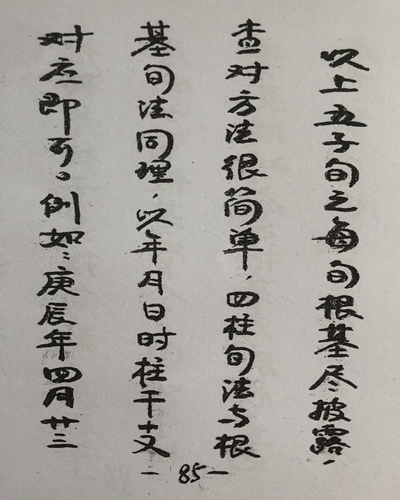 以上五子旬之每旬根基尽披露，
查对方法很简单，四柱旬法与根
基旬法同理，以年月日时柱干支
对应即可。例如：庚辰年四月廿三
-85-